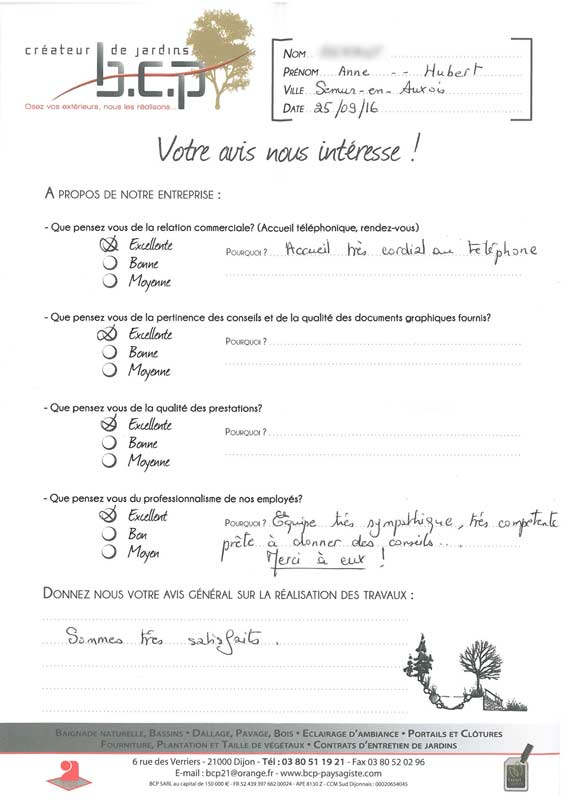 créateur de jardins
b.c.p
Osez vos extérieurs, nous les réalisons...
NOM
PRÉNOM Anne - - Hubert
VILLE Semur-en-Auxois
DATE 25/09/16
Votre avis nous intéresse !
A PROPOS DE NOTRE ENTREPRISE :
- Que pensez vous de la relation commerciale? (Accueil téléphonique, rendez-vous)
Excellente
POURQUOI ? Accueil très cordial au téléphone
Bonne
Moyenne
- Que pensez vous de la pertinence des conseils et de la qualité des documents graphiques fournis?
Excellente
POURQUOI ?
Bonne
Moyenne
- Que pensez vous de la qualité des prestations?
Excellente
POURQUOI ?
Bonne
Moyenne
- Que pensez vous du professionnalisme de nos employés?
Excellent
POURQUOI ? Equipe très sympathique, très compétente
Bon
prête à donner des conseils....
Moyen
Merci à eux !
DONNEZ NOUS VOTRE AVIS GÉNÉRAL SUR LA RÉALISATION DES TRAVAUX :
Sommes très satisfaits.
BAIGNADE NATURELLE, BASSINS • DALLAGE, PAVAGE, BOIS • ECLAIRAGE D'AMBIANCE • PORTAILS ET CLÔTURES
FOURNITURE, PLANTATION ET TAILLE DE VÉGÉTAUX • CONTRATS D'ENTRETIEN DE JARDINS
6 rue des Verriers - 21000 Dijon - Tél : 03 80 51 19 21 - Fax 03 80 52 02 96
E-mail : bcp21@orange.fr - www.bcp-paysagiste.com
BCP SARL au capital de 150 000 € - FR 52 439 397 662 00024 - APE 8130 Z - CCM Sud Dijonnais : 00020654045